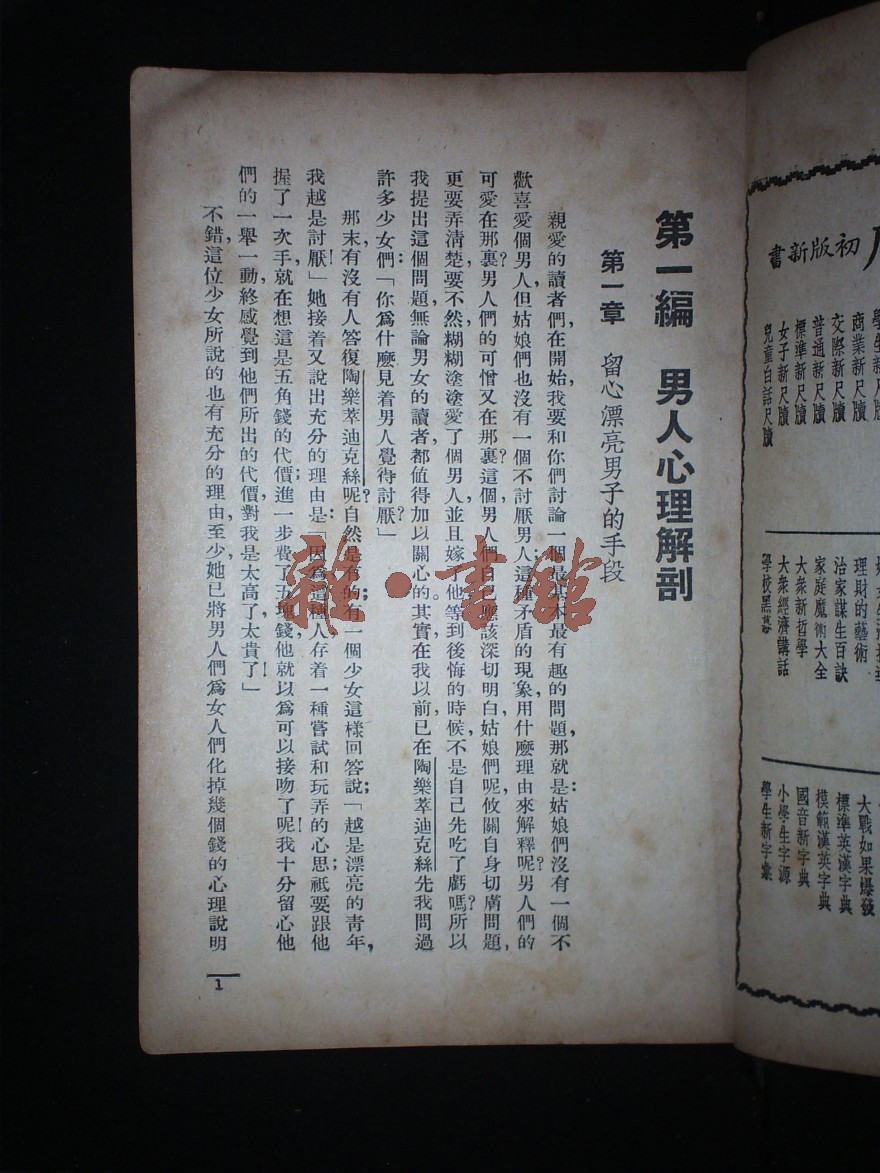 第一編　男人心理解剖
第一章　留心漂亮男子的手段
親愛的讀者們，在開始，我要和你們討論一個最基本最有趣的問題，那就是：姑娘們沒有一個不
歡喜愛個男人，但姑娘們也沒有一個不討厭男人；這種矛盾的現象，用什麼理由來解釋呢？男人們的
可愛在那裏？男人們的可憎又在那裏？這個男人們自己應該深切明白，姑娘們呢，攸關自身切膚問題，
更要弄清楚，要不然，糊糊塗塗愛了個男人，並且嫁了他，等到後悔的時候，不是自己先吃了虧嗎？所以
我提出這個問題，無論男女的讀者，都值得加以關心的。其實在我以前，已在陶樂萃迪克絲先我問過
許多少女們：「你爲什麼見着男人覺得討厭？」
那末有沒有人答復陶樂萃迪克絲呢？自然是有的；有一個少女這樣回答說：「越是漂亮的青年，
我越是討厭！」她接着又說出充分的理由是：「因爲這種人存着一種嘗試和玩弄的心思；祇要跟他
握了一次手，就在想這是五角錢的代價；進一步費了五塊錢，他就以爲可以接吻了呢！我十分留心他
們的一舉一動，終感覺到他們所出的代價，對我是太高了，太貴了！」
不錯，這位少女所說的也有充分的理由，至少，她已將男人們爲女人們化掉幾個錢的心理說明
1
初版新書
學生新尺牘
商業新尺牘
交際新尺牘
普通新尺牘
標準新尺牘
女子新尺牘
兒童白話尺牘
理財的藝術
治家謀生百訣
家庭魔術大全
大衆新哲學
大衆經濟講話
學校黑幕
大戰如果爆發
標準英漢字典
模範漢英字典
國音新字典
小學生字源
學生新字彙
龍·書館